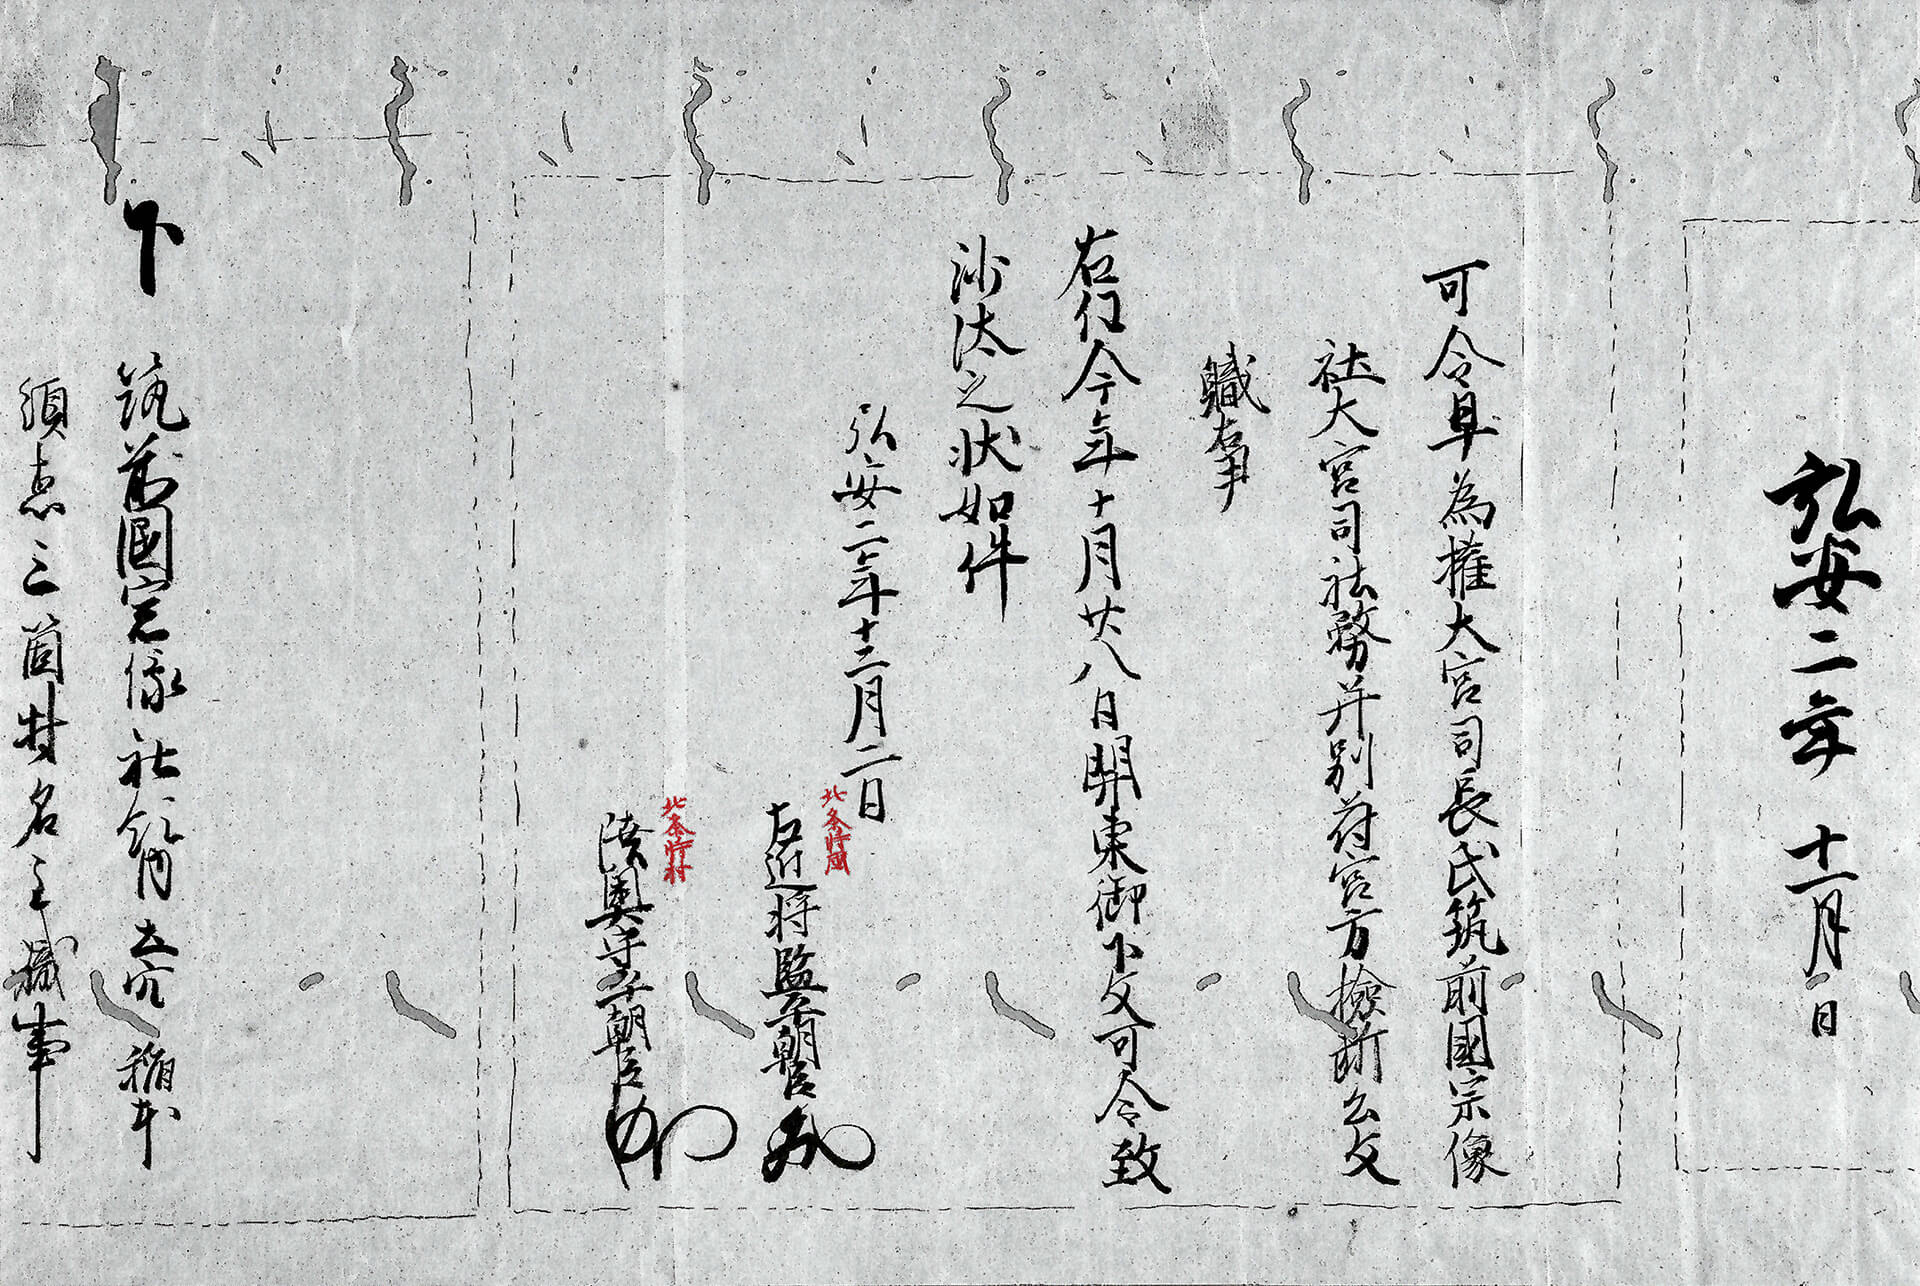 弘安二年十一月日
可令早為權大宮司長氏筑前國宗像
社大宮司社務并別府宮方撿断公文
職事
右任今年十月廿八日關東御下文可令致
沙汰之状如件
弘安二年十二月二日
左近将監平朝臣
北条時國
陸奥守平朝臣
北条時村
下 筑前國宗像社領 稲不
須恵三箇村名主職事